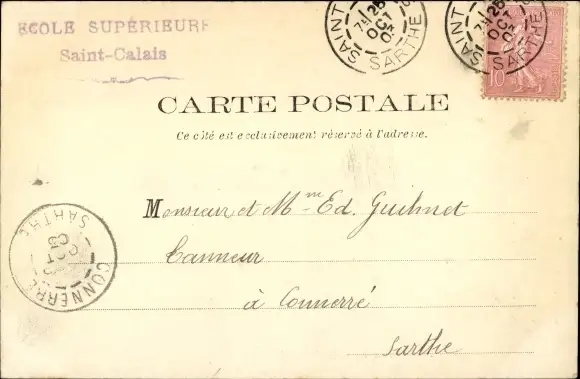 ECOLE SUPÉRIEURE
Saint-Calais
SAINT
7H 26
OCT
03
SARTHE
SAINT
7H 26
OCT
03
SARTHE
10
CARTE POSTALE
Ce côté est exclusivement réservé à l'adresse.
Monsieur et Mme Ed. Guilmet
Tanneur
à Connerré
Sarthe
CONNERRÉ
SARTHE